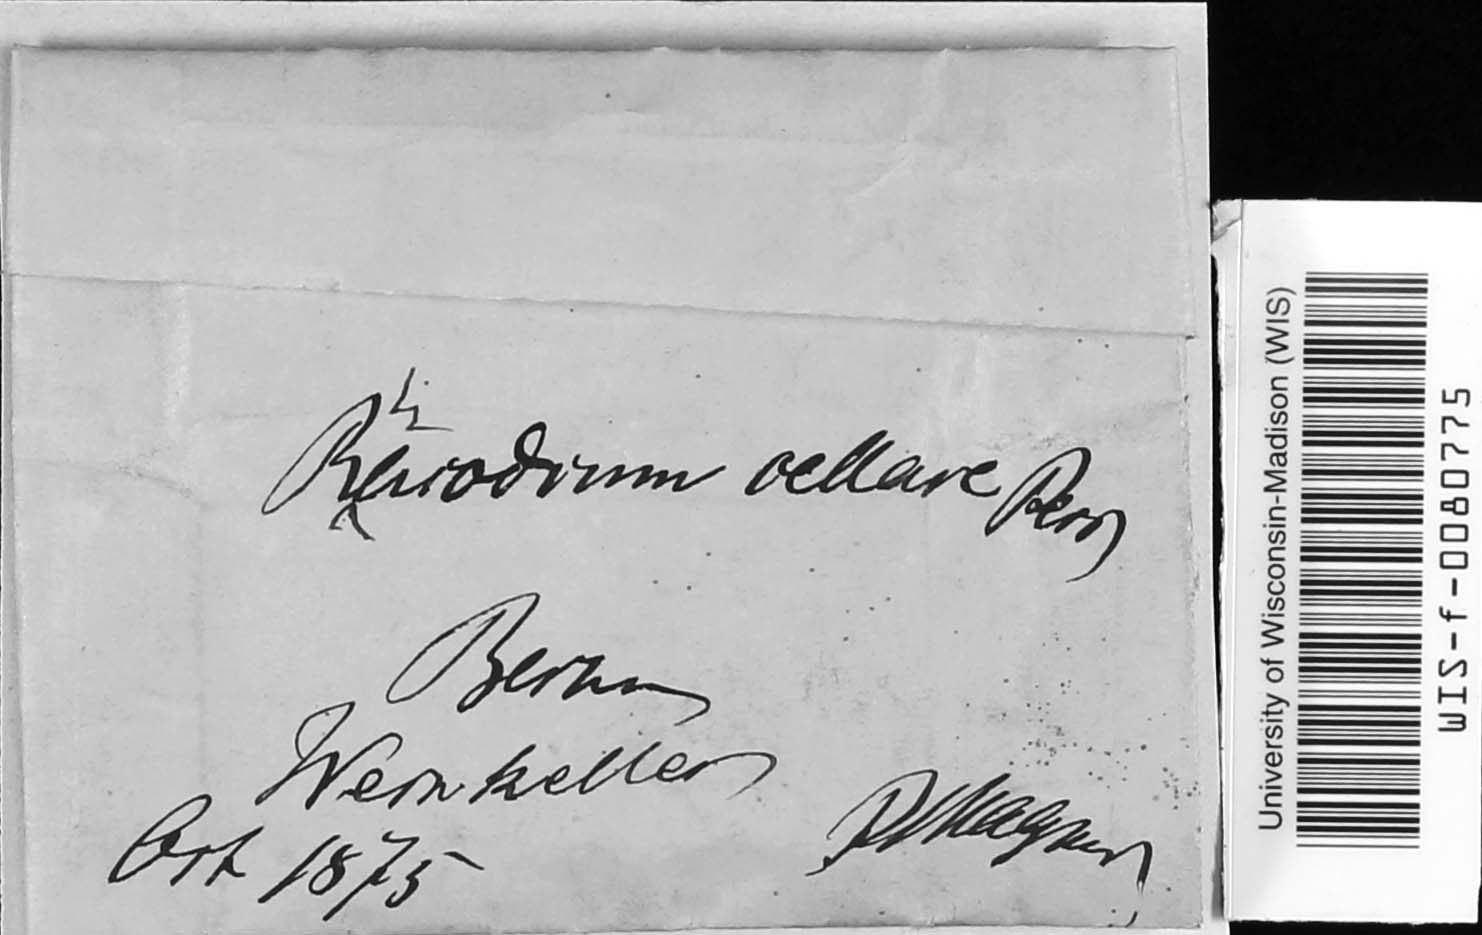 cellare Pers
Bern
Weinkeller
Oct 1875
P Magnus
University of Wisconsin-Madison (WIS)
WIS-f-0080775